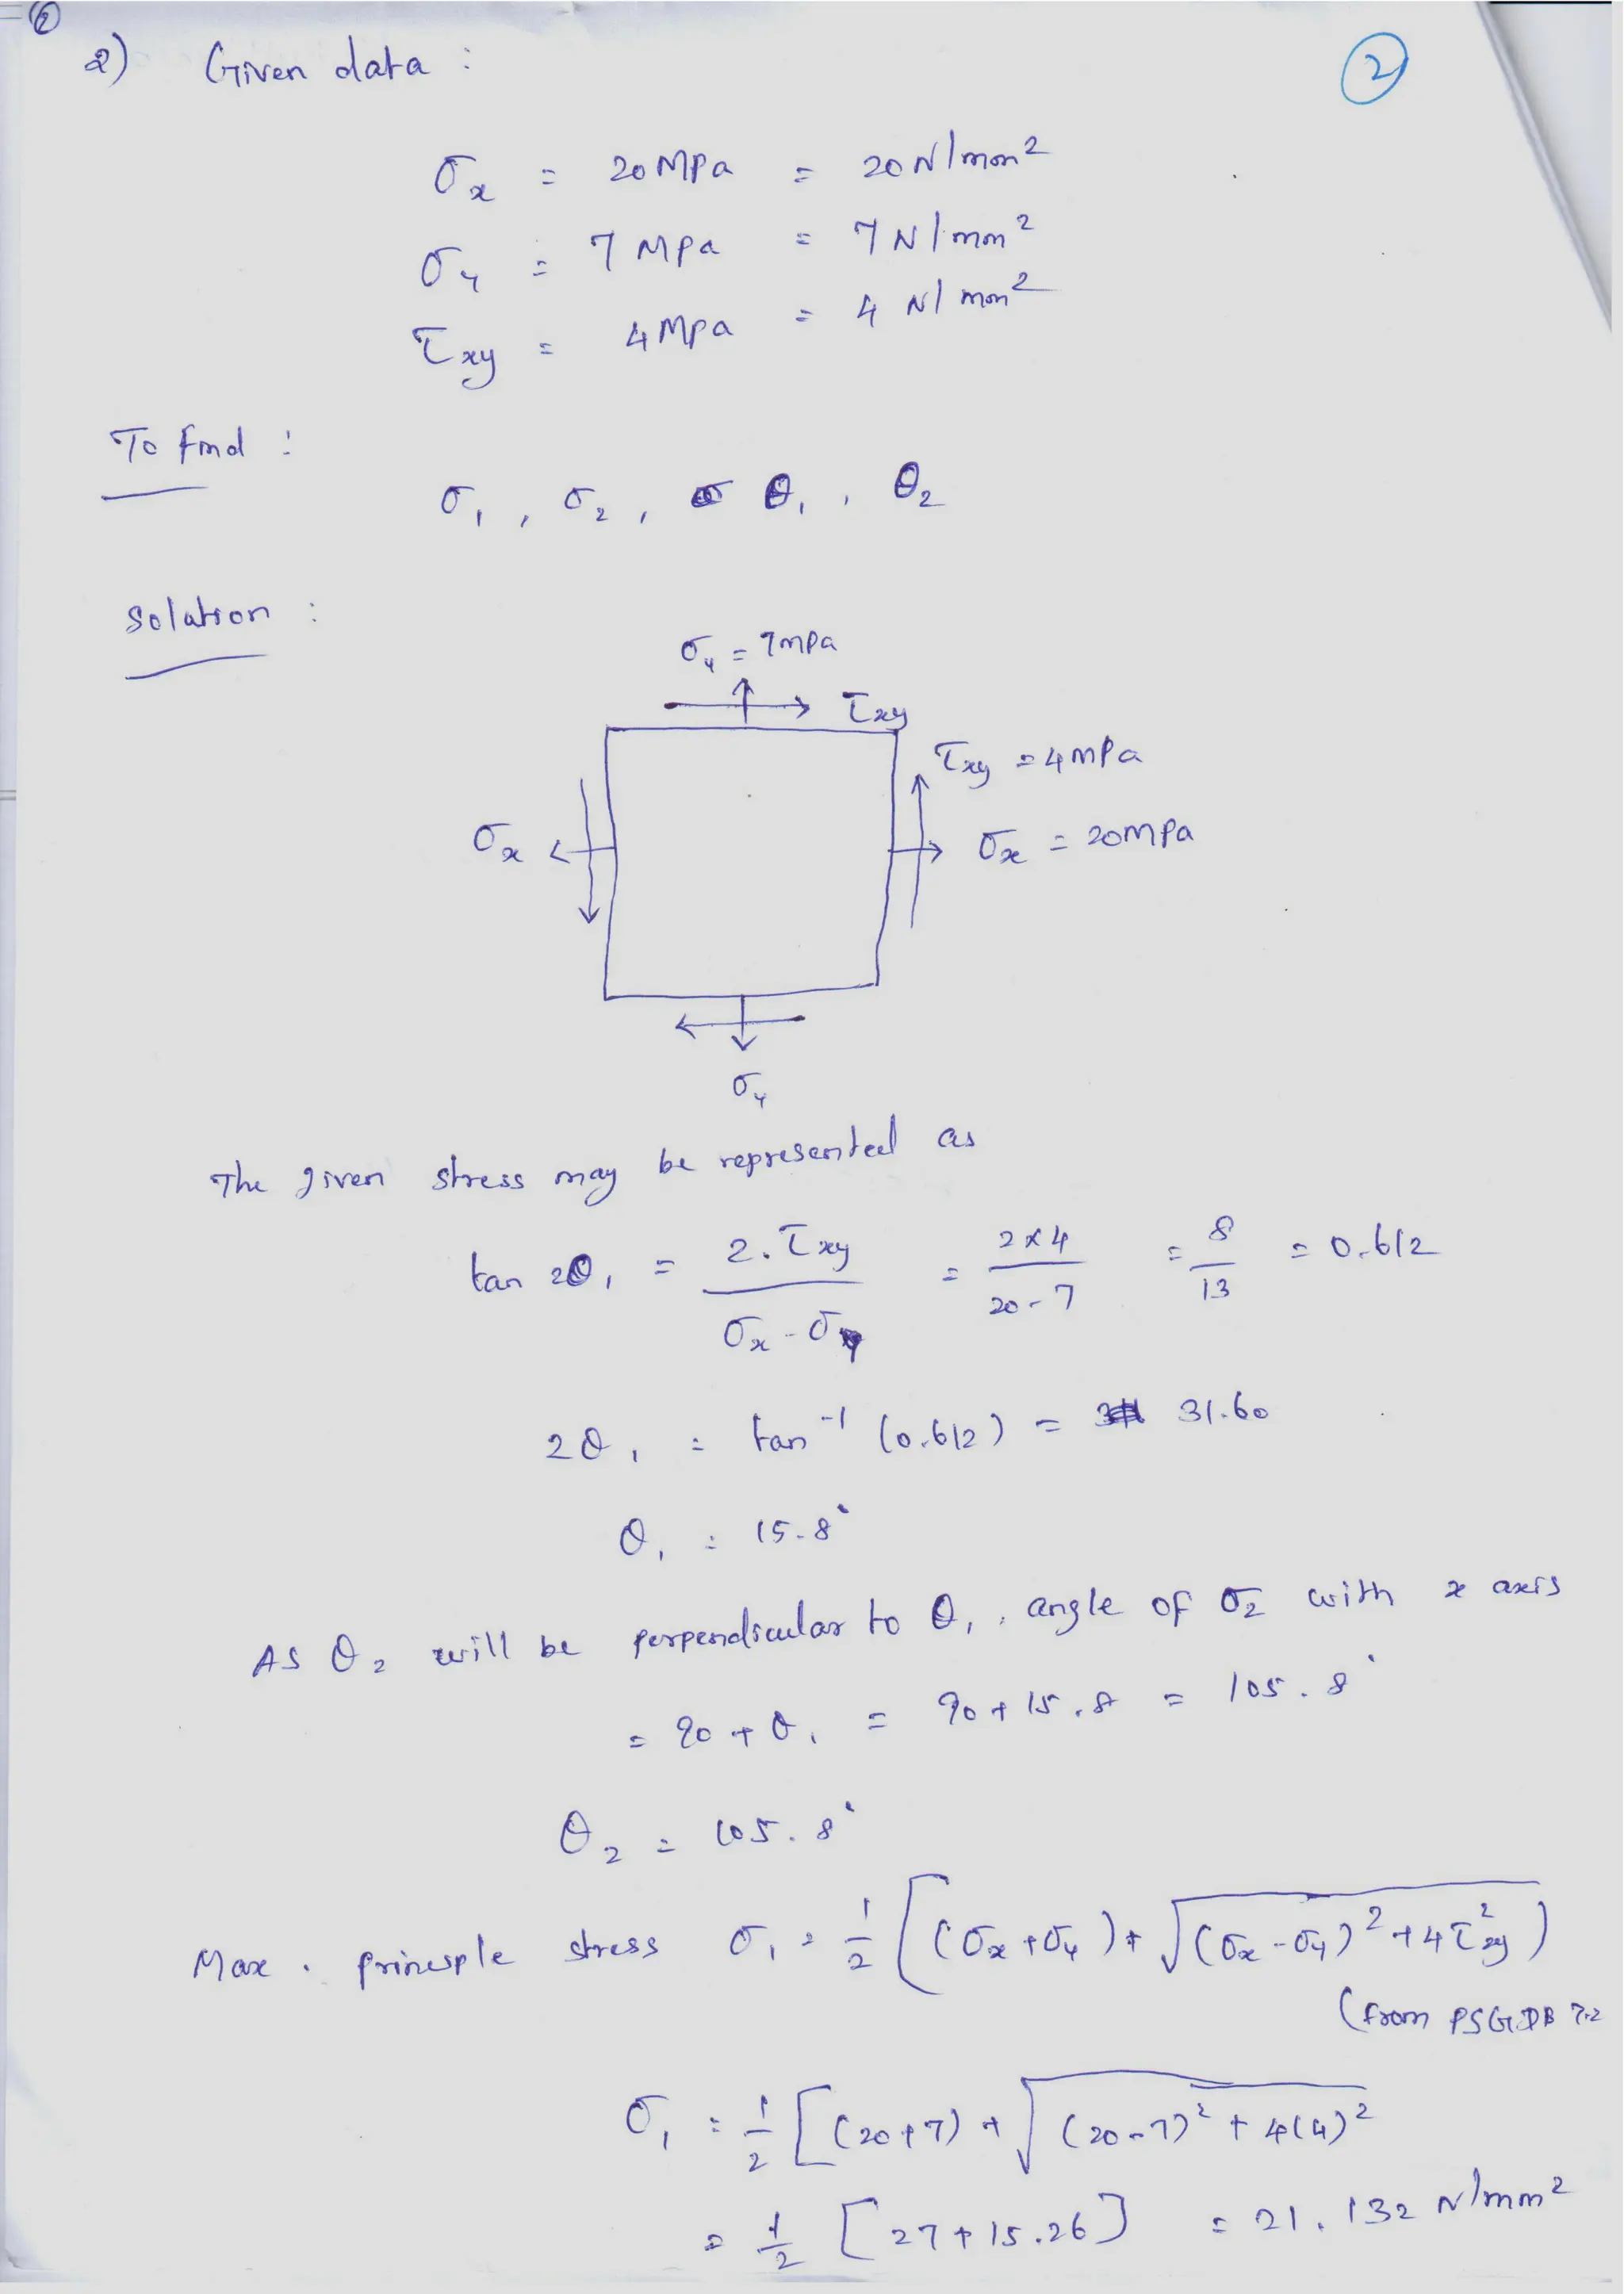 ②
2) Given data :
②
σx = 20 MPa = 20 N/mm²
σy = 7 MPa = 7 N/mm²
τxy = 4 MPa = 4 N/mm²
To find :
σ₁, σ₂, θ₁, θ₂
Solution :
σy = 7 MPa
τxy
τxy = 4 MPa
σx
σx = 20 MPa
σy
The given stress may be represented as
tan 2θ₁ = 2.τxy / (σx - σy) = 2×4 / (20-7) = 8/13 = 0.612
2θ₁ = tan⁻¹ (0.612) = 31.60
θ₁ = 15.8°
As θ₂ will be perpendicular to θ₁, angle of σ₂ with x axis
= 90 + θ₁ = 90 + 15.8 = 105.8°
θ₂ = 105.8°
Max. principle stress σ₁ = 1/2 [(σx + σy) + √((σx - σy)² + 4τ²xy)]
(from PSGDB 7.2
σ₁ = 1/2 [(20+7) + √((20-7)² + 4(4)²
= 1/2 [27 + 15.26] = 21.132 N/mm²